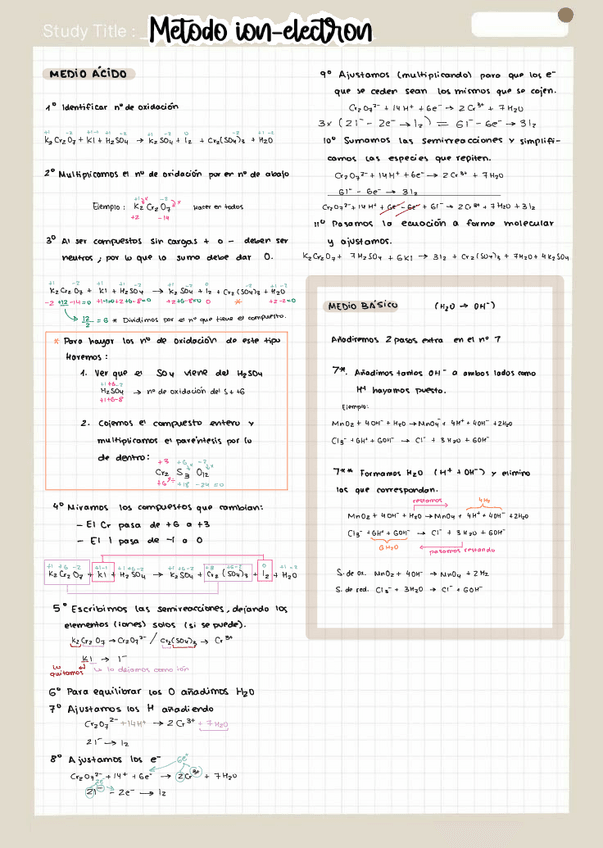 Study Title :
Metodo ion-electron
MEDIO ÁCIDO
1º Identificar nº de oxidación
+1 -2 +1 -1 +1 -2 +1 -2 0 -2 +1 -2
K₂Cr₂O₇ + KI + H₂SO₄ → K₂SO₄ + I₂ + Cr₂(SO₄)₃ + H₂O
2º Multiplicamos el nº de oxidación por en nº de abajo
Ejemplo : K₂ Cr₂ O₇ Hacer en todos
+2 -14
3º Al ser compuestos sin cargas + o - deben ser
neutros, por lo que la suma debe dar 0.
K₂Cr₂O₇ + KI + H₂SO₄ → K₂SO₄ + I₂ + Cr₂(SO₄)₃ + H₂O
12/2 = 6 * Dividimos por el nº que tiene el compuesto.
* Para hayar los nº de oxidación de este tipo
Haremos :
1. Ver que el SO₄ viene del H₂SO₄
+1 +6 -2
H₂SO₄ → nº de oxidación del S +6
+1+6-8
2. Cojemos el compuesto entero y
multiplicamos el paréintesis por lo
de dentro:
+3 +6 -2
Cr₂ S₃ O₁₂
+6 +18 -24 =0
4º Miramos los compuestos que cambian:
- El Cr pasa de +6 a +3
- El I pasa de -1 a 0
K₂Cr₂O₇ + KI + H₂SO₄ → K₂SO₄ + Cr₂(SO₄)₃ + I₂ + H₂O
5º Escribimos las semireacciones, dejando los
elementos (iones) solos (si se puede).
K₂Cr₂O₇ → Cr₂O₇²⁻ / Cr₂(SO₄)₃ → Cr³⁺
KI → I⁻
Lo quitamos ↳ lo dejamos como ión
6º Para equilibrar los O añadimos H₂O
7º Ajustamos los H añadiendo
Cr₂O₇²⁻ + 14H⁺ → 2Cr³⁺ + 7H₂O
2I⁻ → I₂
8º Ajustamos los e⁻
6e⁻
Cr₂O₇²⁻ + 14⁺ + 6e⁻ → 2Cr³⁺ + 7H₂O
2I⁻ - 2e⁻ → I₂
9º Ajustamos (multiplicando) para que los e⁻
que se ceden sean los mismos que se cojen.
Cr₂O₇²⁻ + 14H⁺ + 6e⁻ → 2Cr³⁺ + 7H₂O
3x (2I⁻ - 2e⁻ → I₂) = 6I⁻ - 6e⁻ → 3I₂
10º Sumamos las semirreacciones y simplifi-
camos las especies que repiten.
Cr₂O₇²⁻ + 14H⁺ + 6e⁻ → 2Cr³⁺ + 7H₂O
6I⁻ - 6e⁻ → 3I₂
Cr₂O₇²⁻ + 14H⁺ + 6e⁻ - 6e⁻ + 6I⁻ → 2Cr³⁺ + 7H₂O + 3I₂
11º Pasamos la ecuación a forma molecular
y ajustamos.
K₂Cr₂O₇ + 7H₂SO₄ + 6KI → 3I₂ + Cr₂(SO₄)₃ + 7H₂O + 4K₂SO₄
MEDIO BÁSICO (H₂O → OH⁻)
Añadiremos 2 pasos extra en el nº 7
7*. Añadimos tantos OH⁻ a ambos lados como
H⁺ hayamos puesto.
Ejemplo:
MnO₂ + 4OH⁻ + H₂O → MnO₄⁻ + 4H⁺ + 4OH⁻ + 2H₂O
Cl₃⁻ + 6H⁺ + 6OH⁻ → Cl⁻ + 3H₂O + 6OH⁻
7** Formamos H₂O (H⁺ + OH⁻) y elimino
los que correspondan.
restamos
MnO₂ + 4OH⁻ + H₂O → MnO₄ + 4H⁺ + 4OH⁻ + 2H₂O
Cl₃⁻ + 6H⁺ + 6OH⁻ → Cl⁻ + 3H₂O + 6OH⁻
6H₂O pasamos restando
S. de ox. MnO₂ + 4OH⁻ → MnO₄ + 2H₂
S. de red. Cl₃⁻ + 3H₂O → Cl⁻ + 6OH⁻